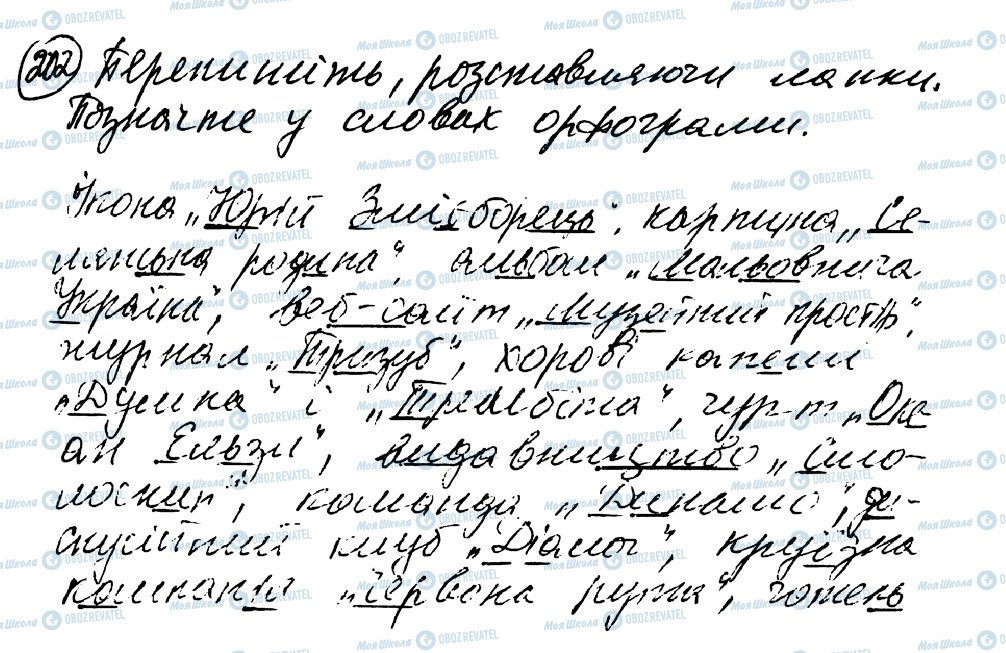 202 Перепишіть, розставляючи лапки.
Позначте у словах орфограми.
Ікона „Юрій Змієборець", картина „Се-
лянська родина", альбом „Мальовнича
Україна", веб-сайт „Музейний простір",
журнал „Тризуб", хорові капели
„Думка" і „Трембіта", гурт „Оке-
ан Ельзи", видавництво „Смо-
лоскип", команда „Динамо", ди-
скусійний клуб „Діалог", круїзна
компанія „Червона рута", готель